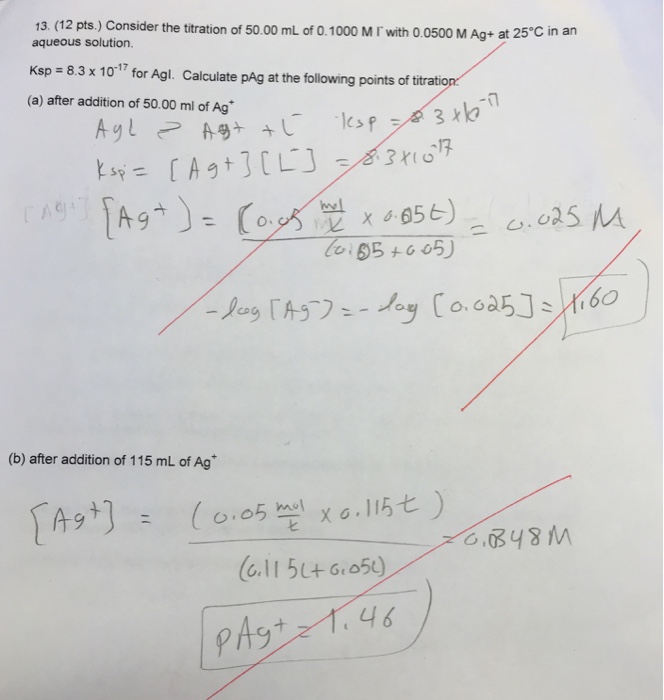 13. (12 pts.) Consider the titration of 50.00 mL of 0.1000 M I⁻ with 0.0500 M Ag+ at 25°C in an
aqueous solution.
Ksp = 8.3 x 10⁻¹⁷ for AgI. Calculate pAg at the following points of titration:
(a) after addition of 50.00 ml of Ag⁺
AgL ⇌ Ag+ + L⁻ Ksp = 8.3 x 10⁻¹⁷
Ksp = [Ag+][L⁻] = 8.3x10⁻¹⁷
[Ag+] = (0.05 mol/L x 0.05L) / (0.05+0.05) = 0.025 M
-log [Ag⁻] = -log [0.025] = 1.60
(b) after addition of 115 mL of Ag⁺
[Ag+] = (0.05 mol/L x 0.115L) / (0.115L+0.05L) = 0.0348M
pAg+ = 1.46